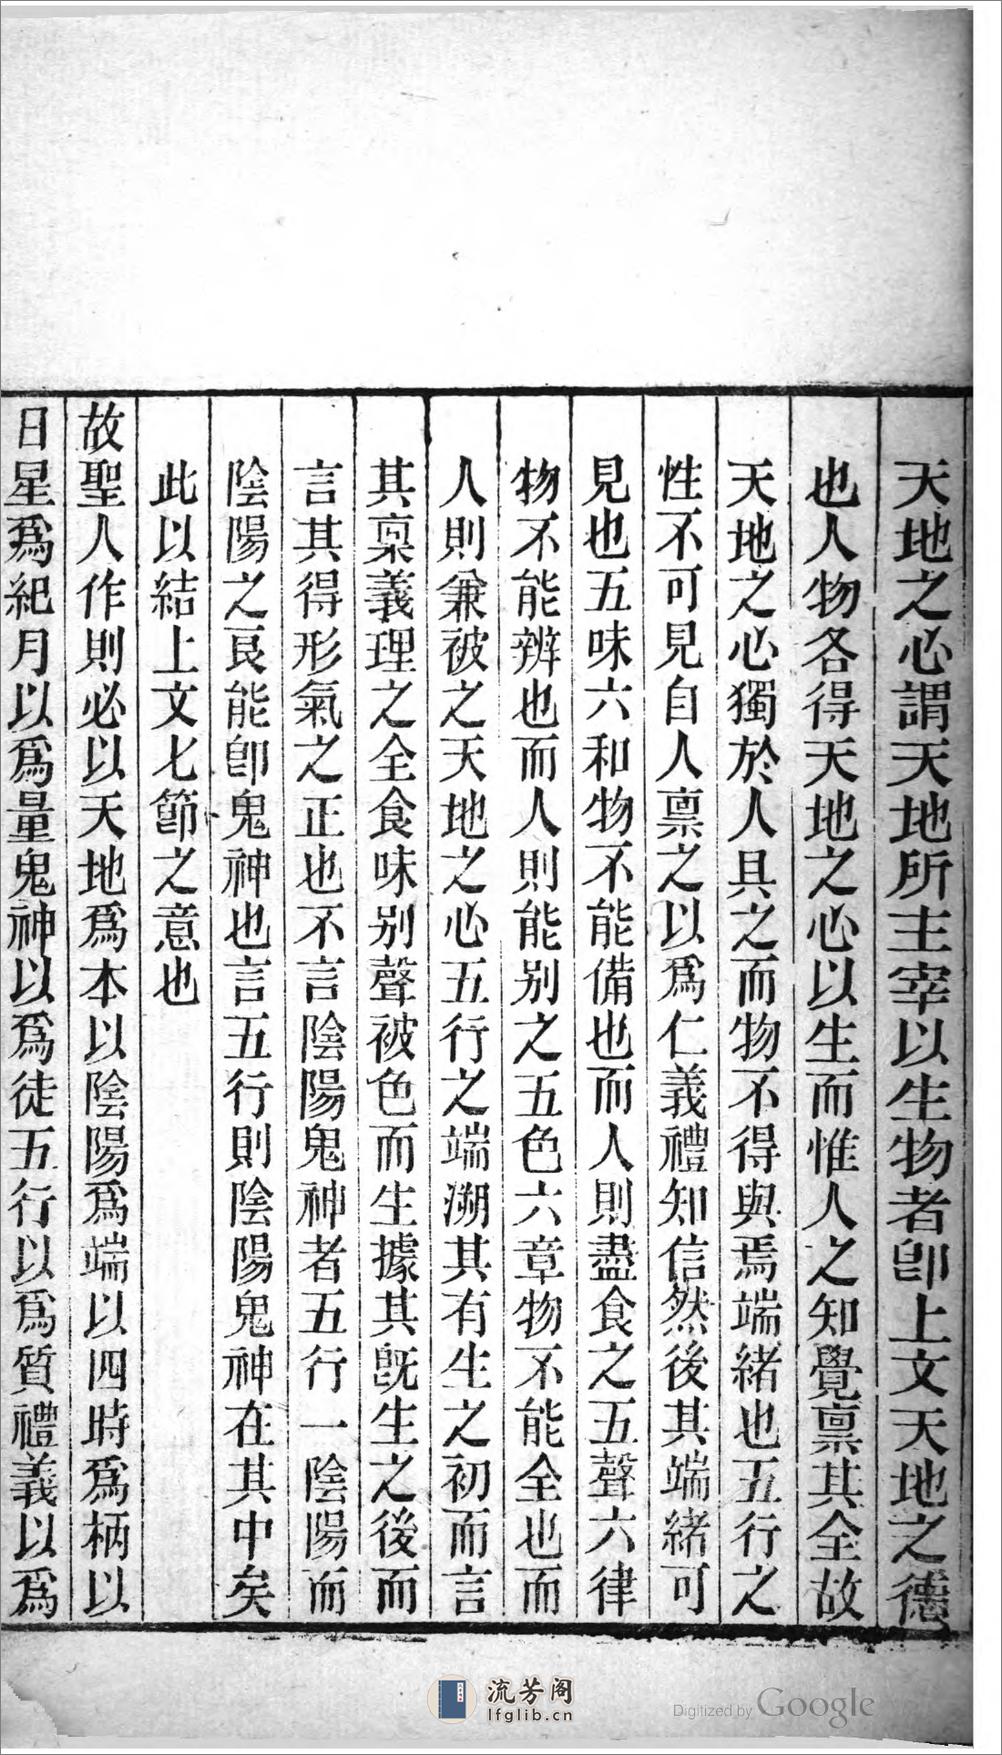 天地之心謂天地所主宰以生物者卽上文天地之德
也人物各得天地之心以生而惟人之知覺稟其全故
天地之心獨於人具之而物不得與焉端緒也五行之
性不可見自人稟之以爲仁義禮知信然後其端緒可
見也五味六和物不能備也而人則盡食之五聲六律
物不能辨也而人則能别之五色六章物不能全也而
人則兼被之天地之心五行之端溯其有生之初而言
其稟義理之全食味别聲被色而生據其旣生之後而
言其得形氣之正也不言陰陽鬼神者五行一陰陽而
陰陽之良能卽鬼神也言五行則陰陽鬼神在其中矣
此以結上文七節之意也
故聖人作則必以天地爲本以陰陽爲端以四時爲柄以
日星爲紀月以爲量鬼神以爲徒五行以爲質禮義以爲
流芳阁
lfglib.cn
Digitized by Google